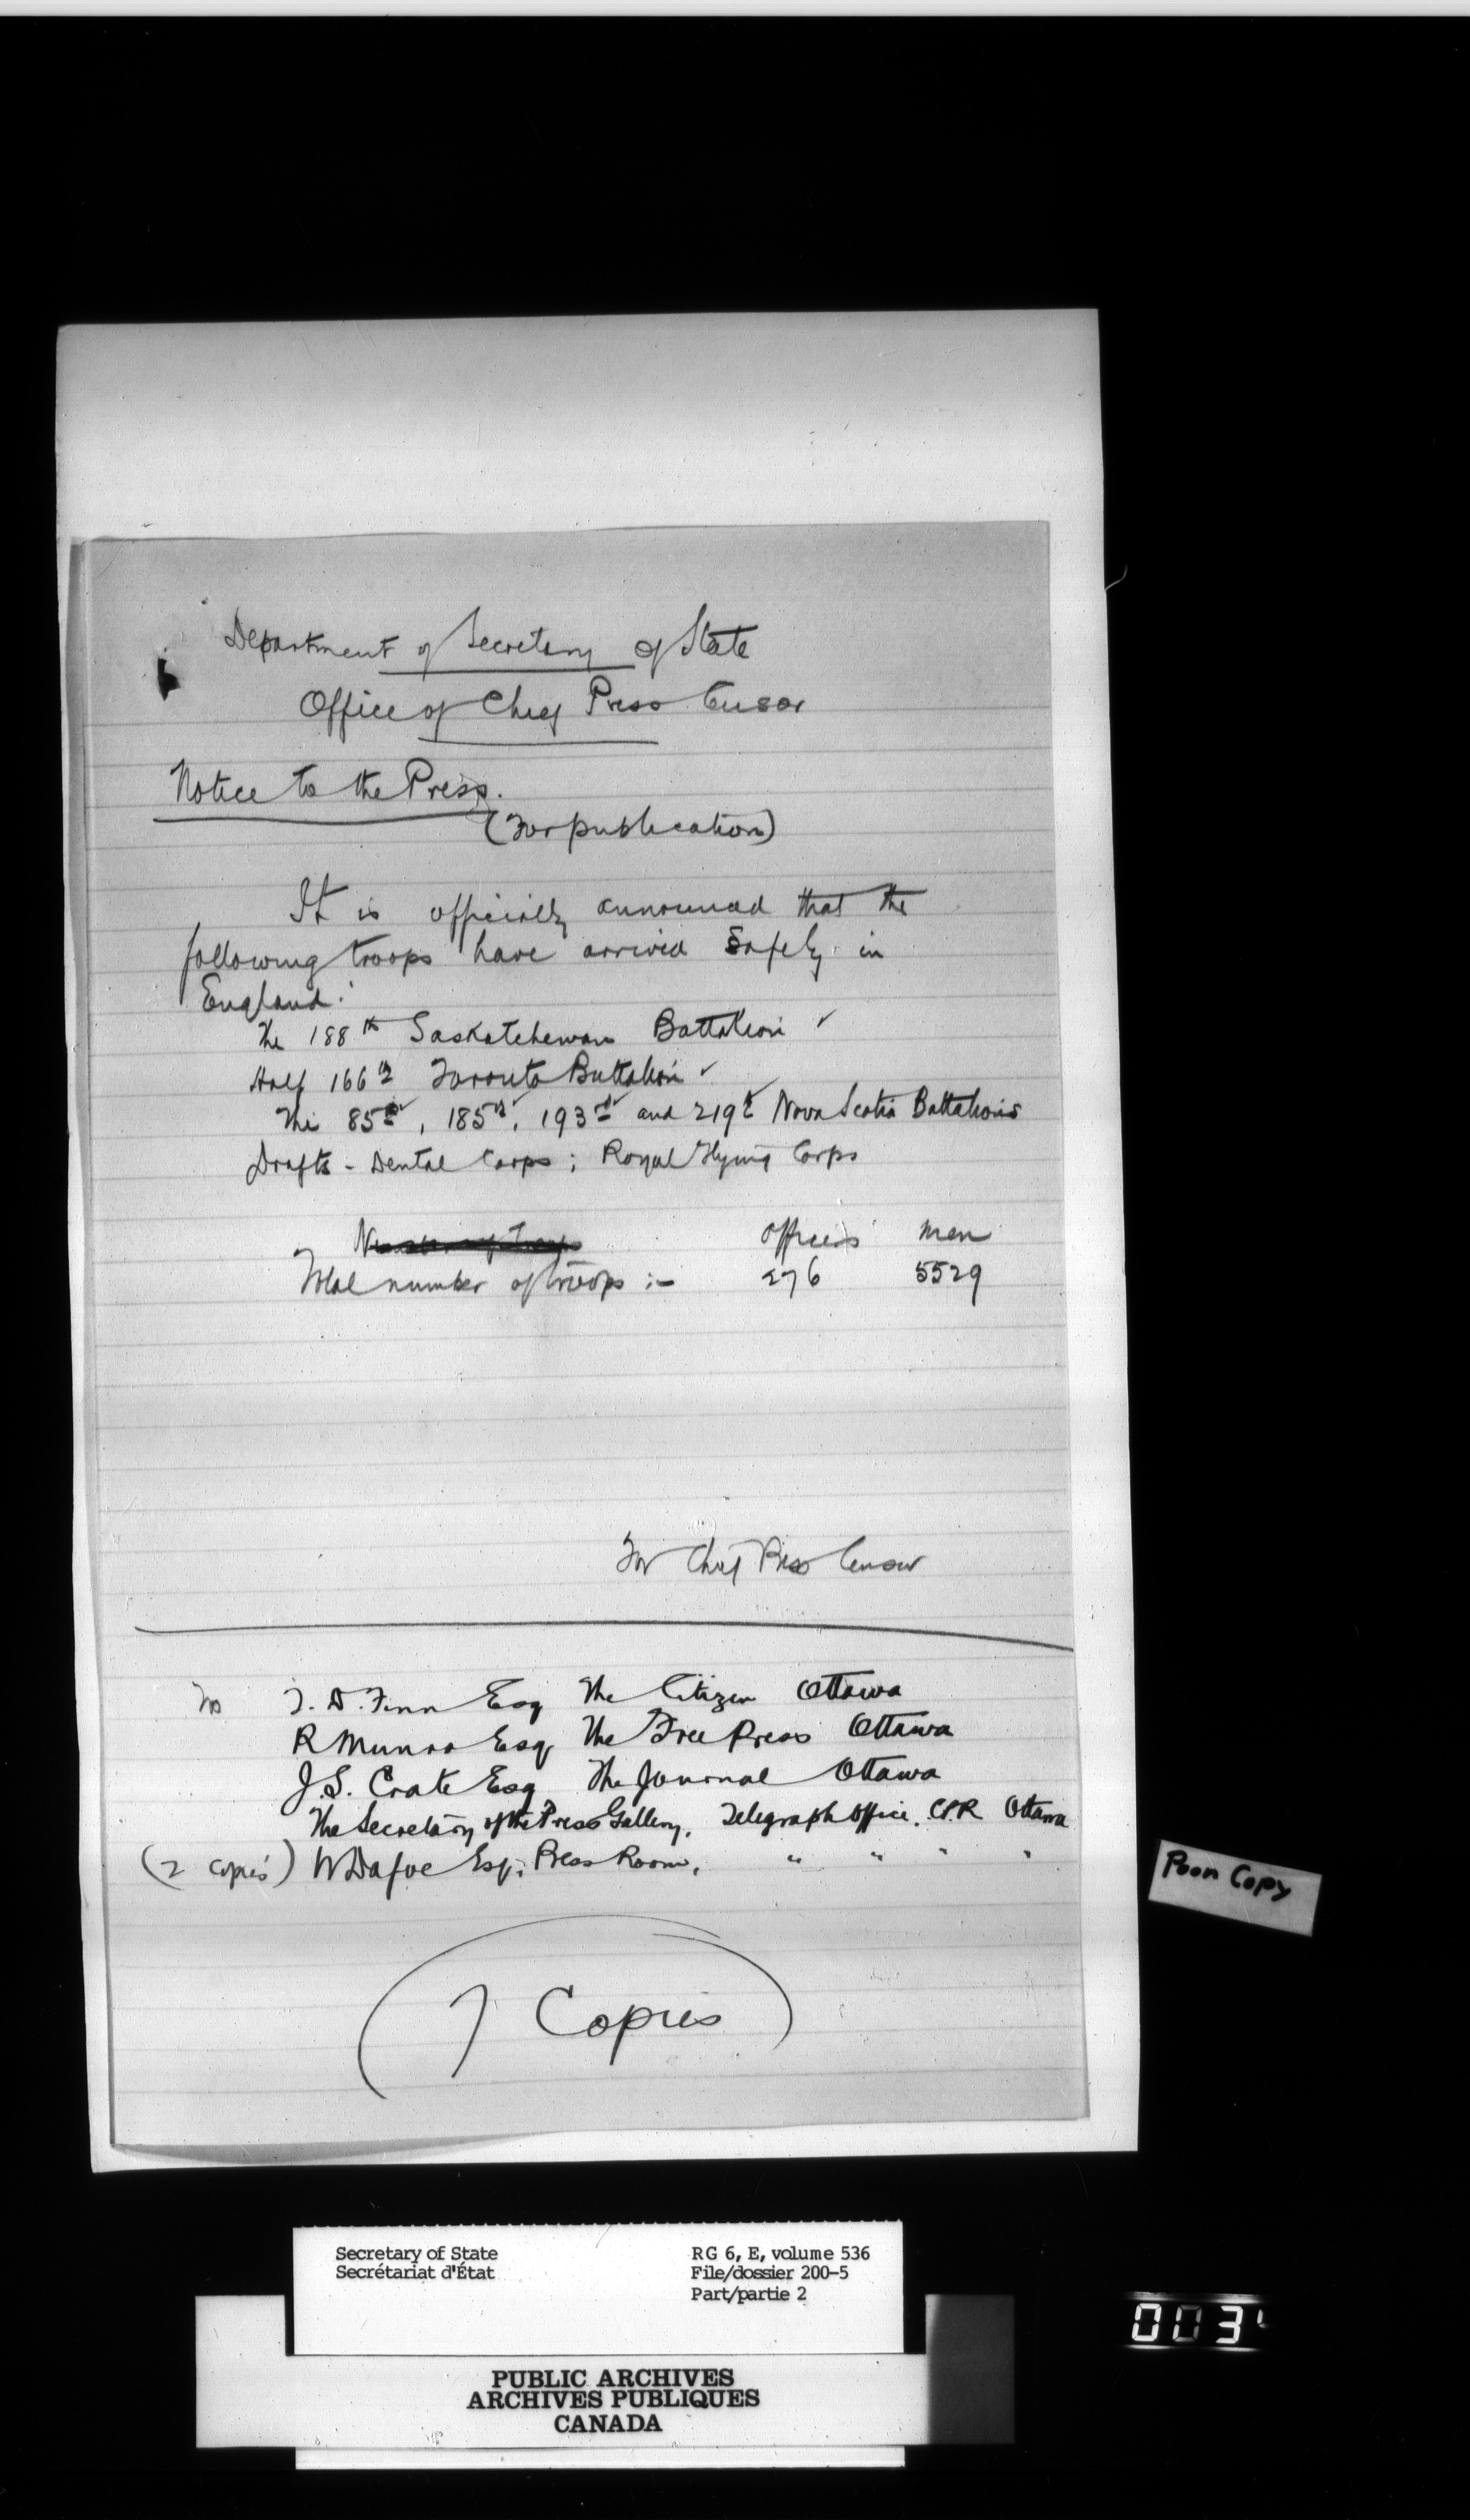 Department of Secretary of State
Office of Chief Press Censor
Notice to the Press.
(For publication)
It is officially announced that the
following troops have arrived safely in
England:
The 188th Saskatchewan Battalion ✓
Half 166th Toronto Battalion ✓
The 85th, 185th, 193rd and 219th Nova Scotia Battalions
Drafts - Dental Corps; Royal Flying Corps
Number of Troops
Officers Men
Total number of troops :- 276 5529
For Chief Press Censor
To J. D. Finn Esq The Citizen Ottawa
R Munro Esq The Free Press Ottawa
J.S. Crate Esq The Journal Ottawa
The Secretary of the Press Gallery, Telegraph Office. C.P.R Ottawa
(2 copies) W Dafoe Esq, Press Room, " " " "
Poor Copy
7 Copies
Secretary of State
Secrétariat d'État
RG 6, E, volume 536
File/dossier 200-5
Part/partie 2
003
PUBLIC ARCHIVES
ARCHIVES PUBLIQUES
CANADA